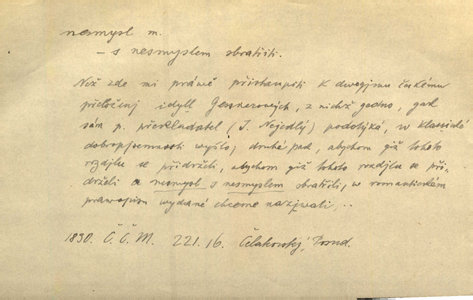 nesmysl m.
– s nesmyslem sbratřiti.
Než zde mi právě přistaupiti k dwogjmu českému
přeloženj idyll Gessnerowých, z nichž gedno, gak
sám p. překladatel (J. Nejedlý) podotýká, w klassické
dobropjsemnosti wyšlo, druhé pak, abychom giž tohoto
rozdjlu se přidrželi, abychom giž tohoto rozdjlu se při-
drželi a nesmysl s nesmyslem sbratřili, w romantickém
prawopisu wydané chceme nazjwati, ..
1830. Č. Č. M. 221. 16. Čelakovský,